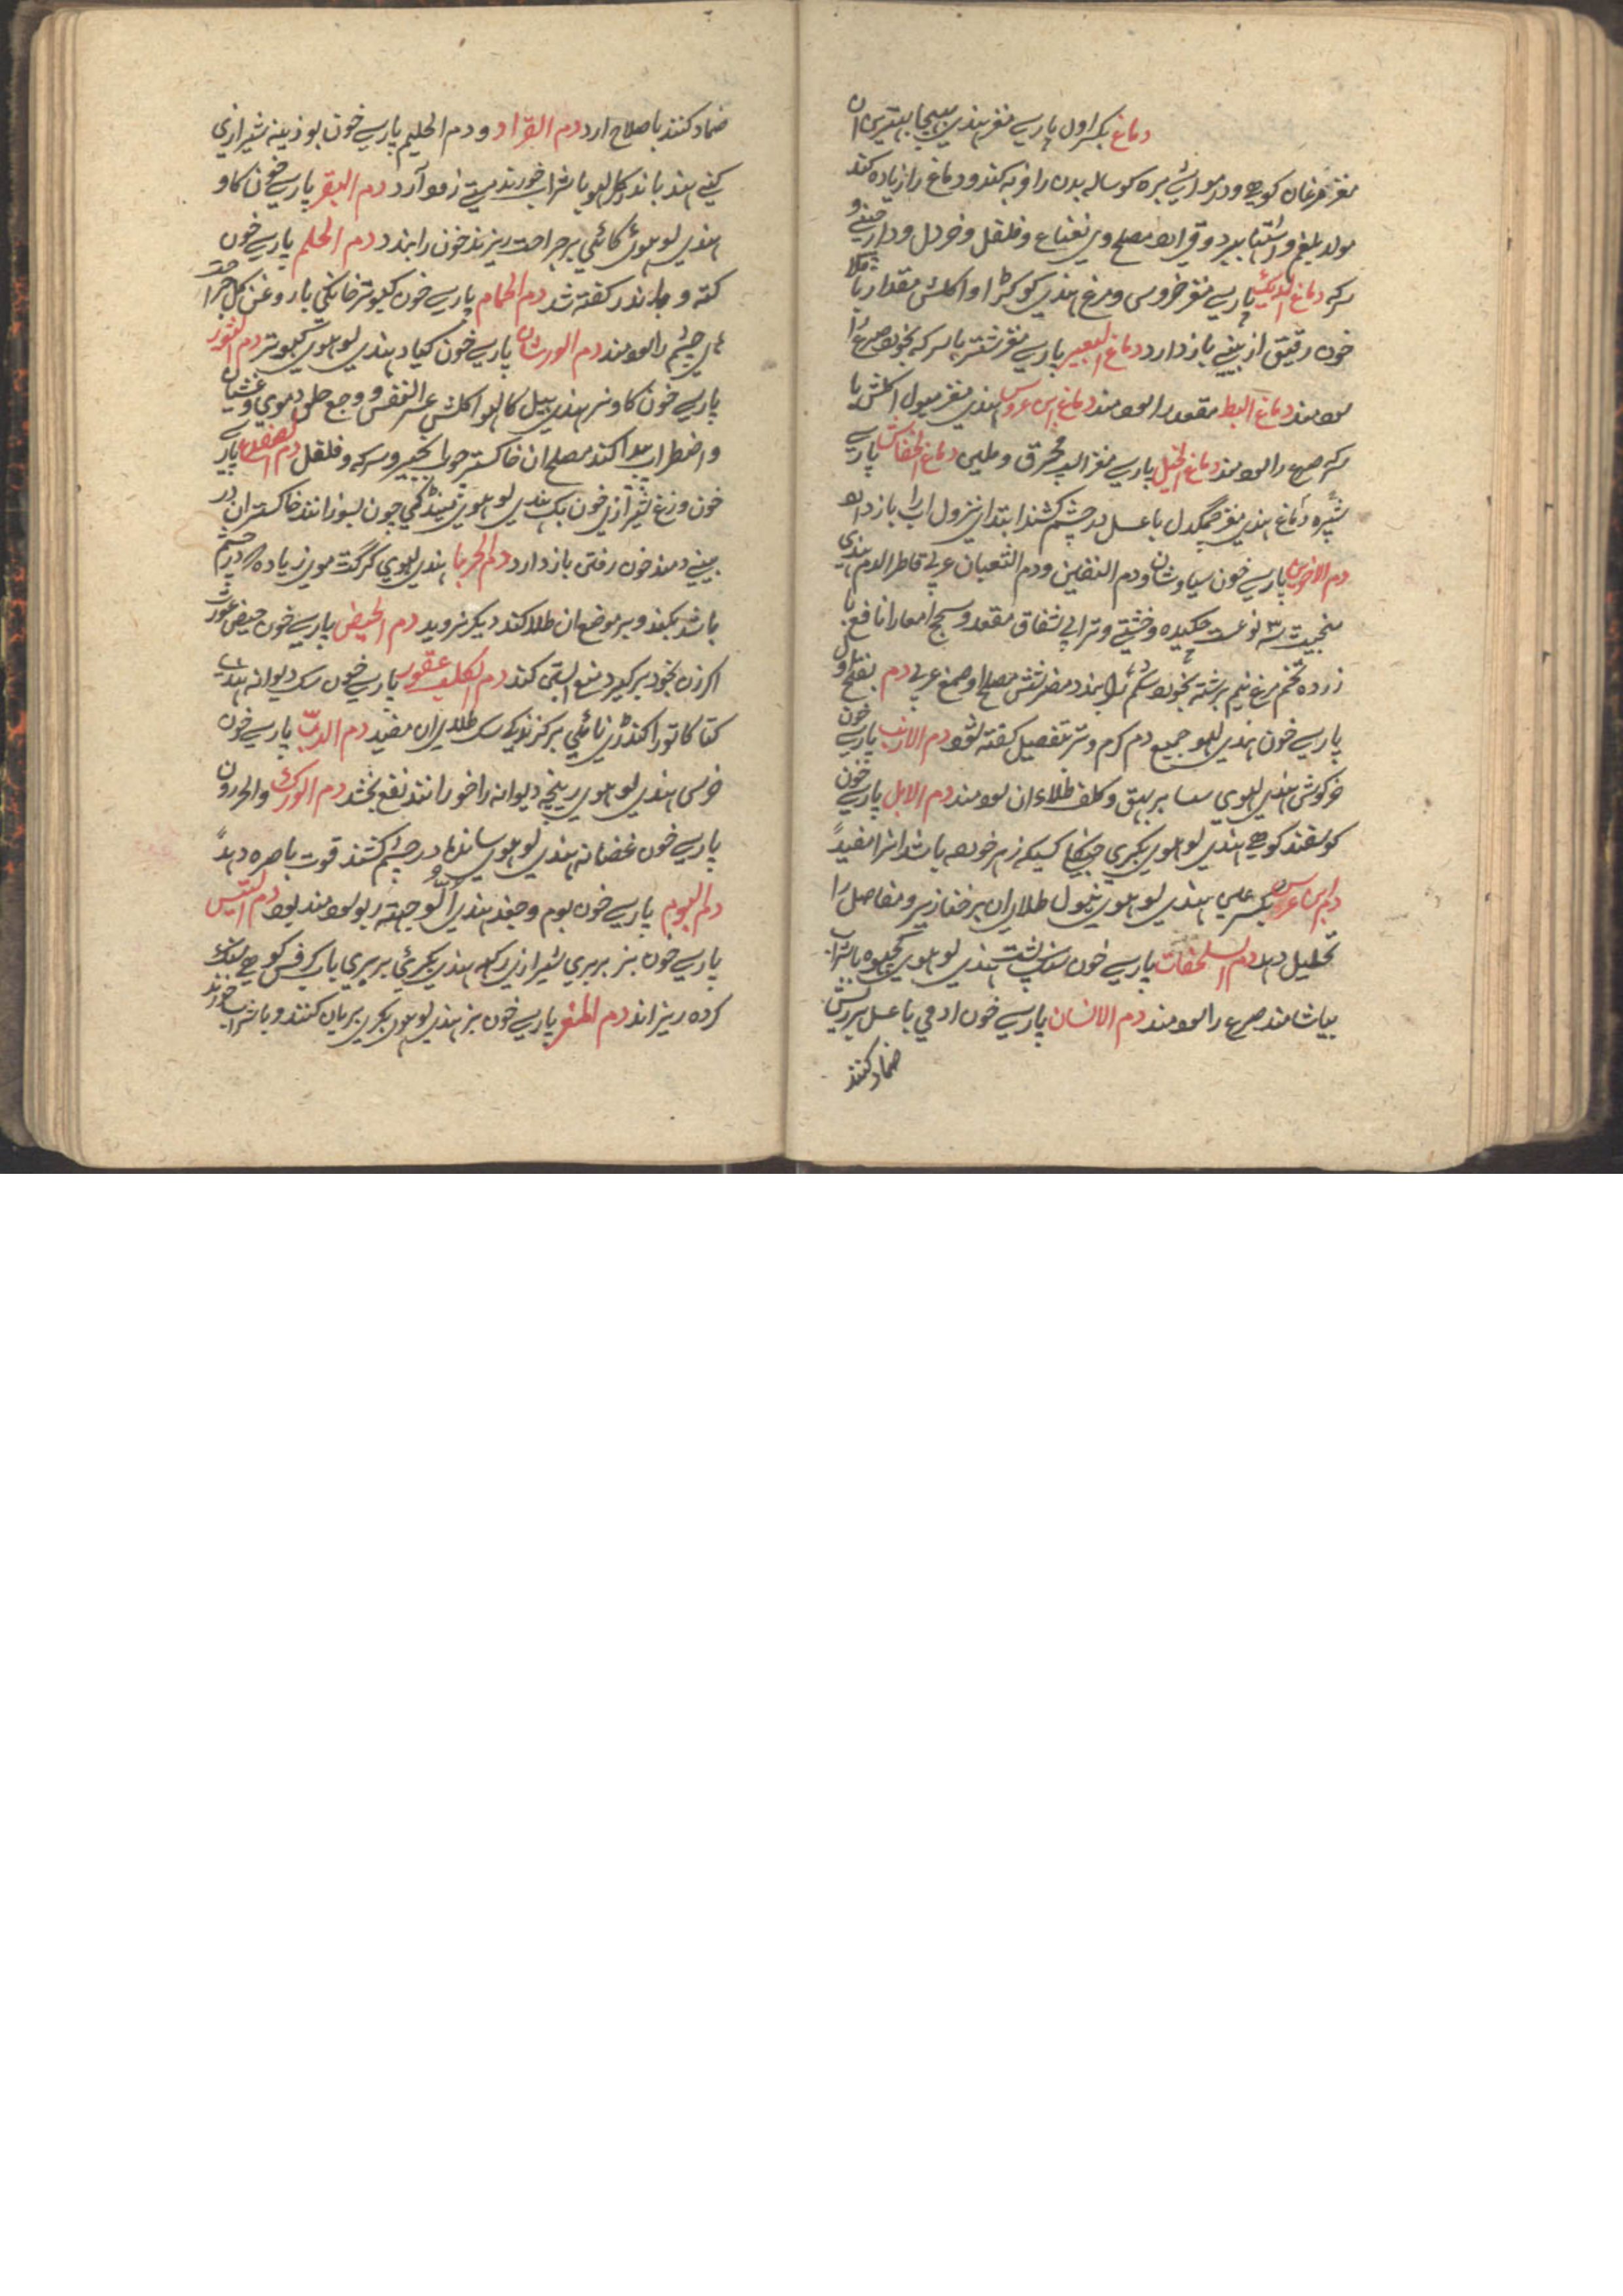 دماغ بکسر اول پارسے مغز هندی بهیجا بهترین ان
مغز مرغان کوهے ودر مواشے بره کوساله بدن را فربه کند ودماغ را زیاده کند
مولد بلغم و اشتها ببرد وقے ارد مصلح وی نعناع وفلفل وخردل ودارچینے و
سرکه دماغ الدیک پارسے مغز خروس ومرغ هندی کوکڑا واکلش مقدار باقلا
خون رقیق از بینے باز دارد دماغ البعیر پارسے مغز شتر با سرکه بخورد صرع را
سودمند دماغ البط مقعد را سودمند دماغ ابن عرس هندی مغز میول اکلش با
سرکه صرع را سودمند دماغ الخیل پارسے مغز اسپ محرق وملین دماغ الخفاش پارسے
شپره دماغ هندی مغز چمگدل با عسل در چشم کشند ابتدای نزول اب را باز دارد
دم الاخوین پارسے خون سیاوشان ودم التنین ودم الثعبان عربے قاطر الدم هندی
منجیت سه نوعست چکیده وخشتے وترابے شفاق مقعد وسحج امعا را نافع با
زرده تخم مرغ نیم برشته بخورد شکم را ببندد مضر شش مصلح او صمغ عربے دم بفتح اول
پارسے خون هندی لهو جمیع دم گرم وتر بتفصیل گفته شود دم الارنب پارسے خون
خرگوش هندی لهوی سسا بر بهق وکلف طلاء ان سودمند دم الابل پارسے خون
گوسفند کوهے هندی لوهوی بکری جنگلے کسیکه زهر خورده باشد انرا مفید
دم ابن عرس بکسر عین هندی لوهوی نیول طلای ان بر خنازیر ومفاصل را
تحلیل دهد دم السلحفات پارسے خون سنگ پشت هندی لوهوی کچهوه با شراب
بیاشامند صرع را سودمند دم الانسان پارسے خون ادمی با عسل بر ریش
ضماد کنند
ضماد کنند باصلاح ارد دم القراد و دم الحلیم پارسے خون بوزینه شیرازی
کنے هند باندر کا لهو با شراب خورند مستے زود آرد دم البقر پارسے خون گاو
هندی لوهوی گائی بر جراحت ریزند خون را ببندد دم الحلم پارسے خون
کنه و مانند گفته شد دم الحمام پارسے خون کبوتر خانگی با روغن گل جراحت
های چشم را سودمند دم الورشان پارسے خون هندی لوهوی کبوتر دم الثور
پارسے خون گاو نر هندی بیل کا لهو اکلش عسر النفس و وجع حلق و غشیان
و اضطراب پیدا کند مصلح ان خاکستر چوب انجیر و سرکه و فلفل دم الضفدع پارسے
خون وزغ شیرازی خون بک هندی لوهوی مینڈکی چون بسوزانند خاکستر ان در
بینے دمند خون رفتن باز دارد دم الحربا هندی لهوی گرگٹ موی زیاده که در چشم
باشد بکنند و بر موضع ان طلا کنند دیگر نروید دم الحیض پارسے خون حیض عورت
اگر زن بخود برگیرد منع ابستنی کند دم الکلب عقور پارسے خون سگ دیوانه هندی
کتا کاتورا بر گزندگے سگ طلای ان مفید دم الدبّ پارسے خون
خرس هندی لوهوی ریچه دیوانه را خورانند نفع بخشد دم الورل والحردون
پارسے خون هندی لوهوی سانڈا در چشم کشند قوت باصره دهد
دم البوم پارسے خون بوم وجغد هندی الّو جهته ربو سودمند بود دم التیس
پارسے خون بز بربری شیرازی هندی بکری بربری با کرفس کوهے
کرده ریزاند دم المعز پارسے خون بز هندی لوهوی بکری بریان کنند و با شراب خورند